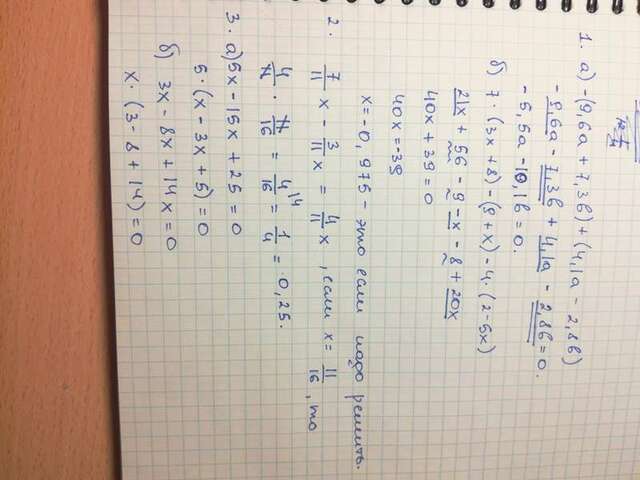 1. а) -(9,6а + 7,3в) + (4,1а - 2,8в)
- 9,6а - 7,3в + 4,1а - 2,8в = 0.
- 5,5а - 10,1в = 0.
б) 7 · (3х + 8) - (9 + х) - 4 · (2 - 5х)
21х + 56 - 9 - х - 8 + 20х
40х + 39 = 0
40х = -39
х = -0,975 - это если надо решить.
2. 7/11 х - 3/11 х = 4/11 х, если х = 11/16, то
4/11 · 11/16 = 4/16 = 1/4 = 0,25.
3. а) 5х - 15х + 25 = 0
5 · (х - 3х + 5) = 0
б) 3х - 8х + 14х = 0
х · (3 - 8 + 14) = 0